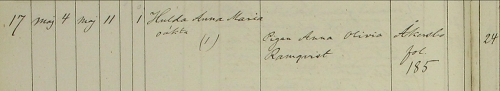 17 maj 4 maj 11 1 Hulda Anna Maria
oäkta (1)
Pigan Anna Olivia
Ramqvist
fol.
185
24